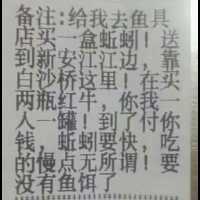 备注:给我去鱼具
店买一盒蚯蚓!送
到新安江江边,靠
白沙桥这里!在买
两瓶红牛,你我一
人一罐!到了付你
钱,蚯蚓要快,吃
的慢点无所谓!要
没有鱼饵了